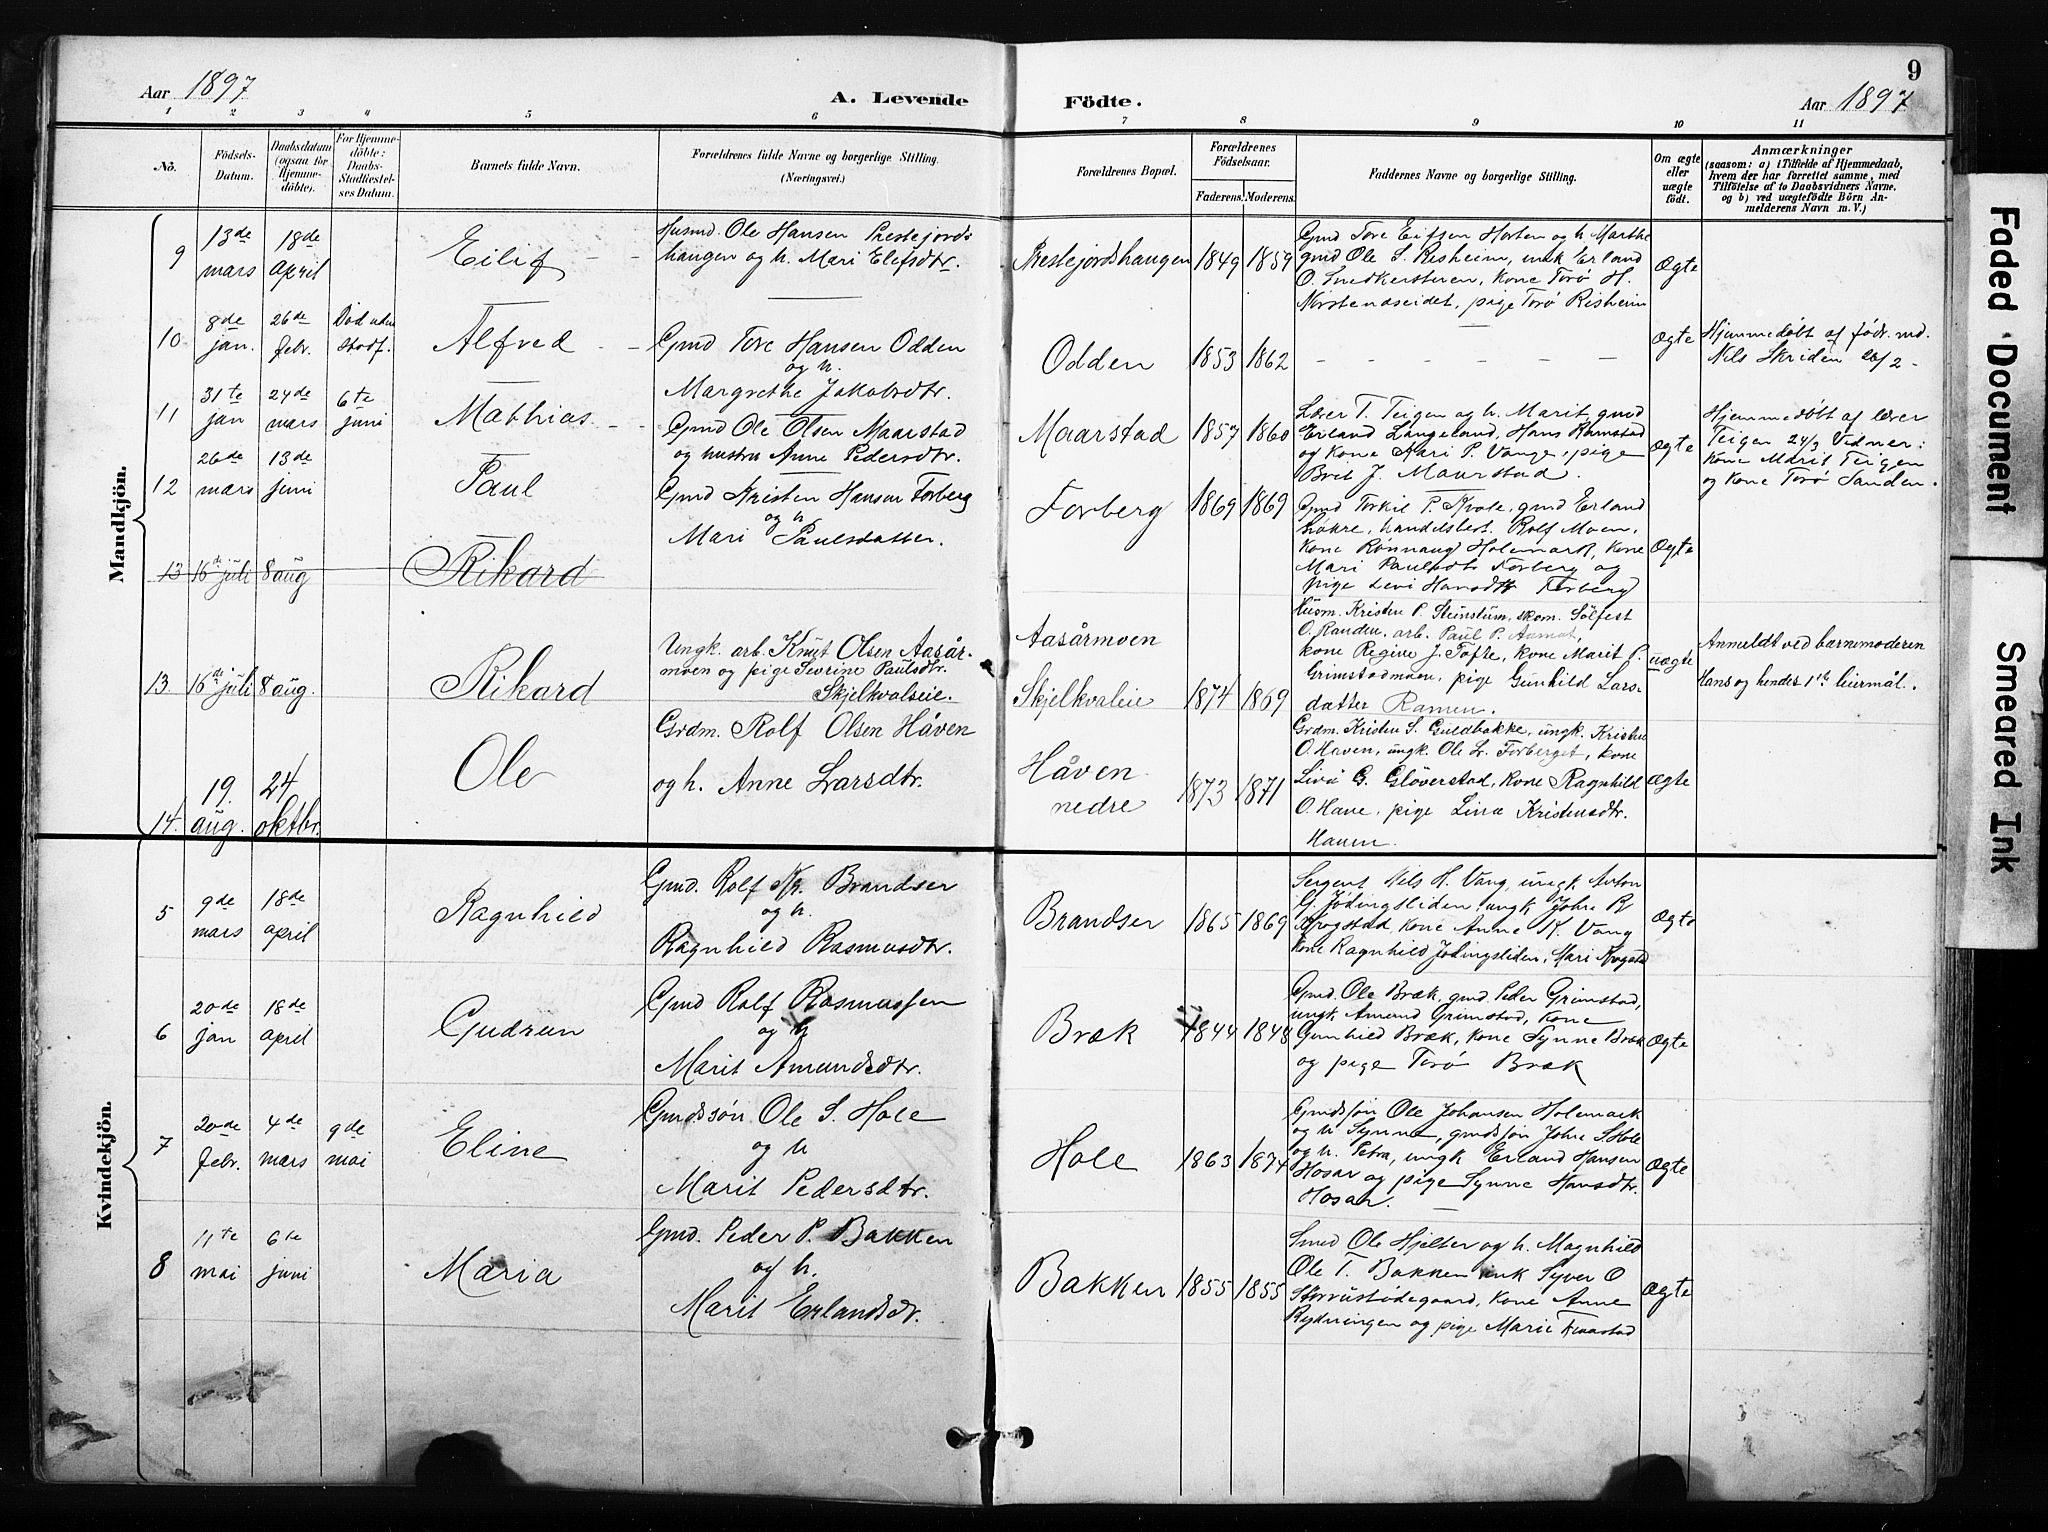 9
Aar 1897
A. Levende
Födte.
Aar 1897
1 2 3 4 5 6 7 8 9 10 11
No.
Födsels-
Datum.
Daabsdatum
(ogsaa for
Hjemme-
döbte).
For Hjemme-
döbte:
Daabs-
Stadfæstel-
ses Datum.
Barnets fulde Navn.
Forældrenes fulde Navne og borgerlige Stilling.
(Næringsvei.)
Forældrenes Bopæl.
Forældrenes
Födselsaar.
Faderens. Moderens.
Faddernes Navne og borgerlige Stilling.
Om ægte
eller
uægte
födt.
Anmærkninger
(saasom: a) i Tilfælde af Hjemmedaab,
hvem der har forrettet samme, med
Tilföielse af to Daabsvidners Navne.
og b) ved uægtefödte Börn An-
melderens Navn m. V.)
Mandkjön.
9
13de
mars
18de
april
Eilif
Husmd. Ole Hansen Prestejords
haugen og h. Mari Elefsdtr.
Prestejordshaugen
1849 1859
Gmd Tore Hosten og h. Marthe
gmd Ole S. Risheim, ungk Erland
O. Snedkerstuen, kone Torø H.
Norstenæseidet, pige Torø Risheim
Ægte
10
8de
jan.
26de
febr.
Død uden
stadf.
Alfred
Gmd Tore Hansen Odden
og h.
Margrethe Jakobsdtr.
Odden
1853 1862
Ægte
Hjemmedøbt af
Nils Skriden 26/2
11
31te
jan
24de
mars
6te
juni
Mathias
Gmd Ole Olsen Maarstad
og hustru Anne Pedersdtr.
Maarstad
1857 1860
Lærer T. Teigen og h. Marit, gmd
Erland Langeland, Hans Ramstad
og kone Kari P. Vange, pige
Brit J. Maurstad.
Ægte
Hjemmedøbt af lærer
Teigen 24/3 Vidner:
Kone Marit Teigen
og Kone Torø Sanden.
12
26de
mars
13de
juni
Paul
Gmd Kristen Hansen Forberg
og h
Mari Paulsdatter.
Forberg
1869 1869
Gmd Torkil P. Kvale, gmd Erland
Løkre, handelsbest. Rolf Moen,
Kone Rønnaug Holemark, kone
Mari Paulsdtr Forberg og
pige Levi Hansdtr Forberg
Ægte
13 16de juli 8 aug
Rikard
13. 16de juli 8 aug.
Rikard
Ungk. arb. Knut Olsen Aasår-
moen og pige Sevrine Paulsdtr.
Skjelkvaleie.
Aasårmoen
Skjelkvaleie
1874 1869
Husm. Kristen P. Stunstum, skom. Sölfest
O. Randen, arb. Paul P. Aamot,
kone Regine J. Tofte, kone Marit P.
Grimstadmoen, pige Gunhild Lars-
datter Ramen.
uægte
Anmeldt ved barnemoderen
Hans og hendes 1ste leiermål.
14.
19.
aug.
24
oktbr.
Ole
Grdm. Rolf Olsen Håven
og h. Anne Larsdtr.
Håven
nedre
1873 1871
Grdm. Kristen S. Guldbakke, ungk. Kristen
O. Haven, ungk. Ole L. Forberget, kone
Livi G. Glöverstad, kone Ragnhild
O. Have, pige Lina Kristensdtr.
Haven.
Ægte
Kvindekjön.
5
9de
mars
18de
april
Ragnhild
Gmd. Rolf Kr. Brandser
og h.
Ragnhild Rasmusdtr.
Brandser
1865 1869
Sergent Nils H. Vang, ungk Anton
G. Jødingsliden, ungk Johre R
Krogstad, kone Anne K. Vang
kone Ragnhild Jødingsliden, Mari
Ægte
6
20de
jan
18de
april
Gudrun
Gmd Rolf Rasmussen
og h
Marit Amundsdtr.
Bræk
1844 1848
Gmd. Ole Bræk, gmd. Peder Grimstad,
ungk Amund Grimstad, kone
Gunhild Bræk, kone Synne Bræk
og pige Torø Bræk
Ægte
7
20de
febr.
4de
mars
9de
mai
Eline
Gmdssøn Ole S. Hole
og h
Marit Pedersdtr.
Hole
1863 1874
Gmdssøn Ole Johansen Holemark
og h Synne, gmdssøn Johre S Hole
og h. Petra, ungk Erland Hansen
Hosar og pige Synne Hansdtr.
Hosar.
Ægte
8
11te
mai
6te
juni
Maria
Gmd. Peder P. Bakken
og h.
Marit Erlandsdr.
Bakken
1855 1855
Smed Ole Hjelter og h. Magnhild
Ole T. Bakken unk Syver O
Storrustadegaard, kone Anne
Rydningen og pige Marie
Ægte
Faded Document
Smeared Ink